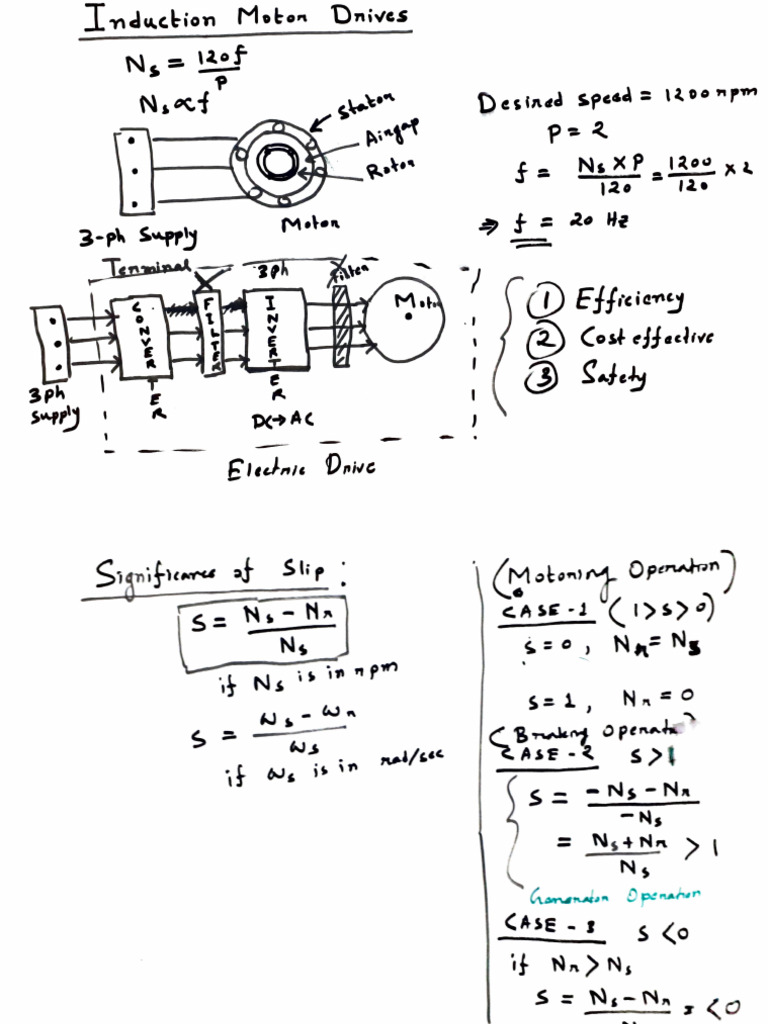 Induction Motor Drives
Ns = 120f / P
Ns ∝ f
Stator
Airgap
Rotor
Motor
3-ph Supply
Desired speed = 1200 rpm
P = 2
f = Ns × P / 120 = 1200 / 120 × 2
⇒ f = 20 Hz
Terminal
3ph
Filter
CONVERTER
FILTER
INVERTER
Motor
3ph
Supply
DC→AC
Electric Drive
① Efficiency
② Cost effective
③ Safety
Significance of Slip :
S = Ns - Nr / Ns
if Ns is in rpm
S = ωs - ωr / ωs
if ωs is in rad/sec
(Motoring Operation)
CASE-1 (1>s>0)
s=0, Nr = Ns
s=1, Nr = 0
(Braking Operatn)
CASE-2 S>1
S = -Ns - Nr / -Ns
= Ns + Nr / Ns > 1
Generator Operation
CASE-3 S<0
if Nr > Ns
S = Ns - Nr <0